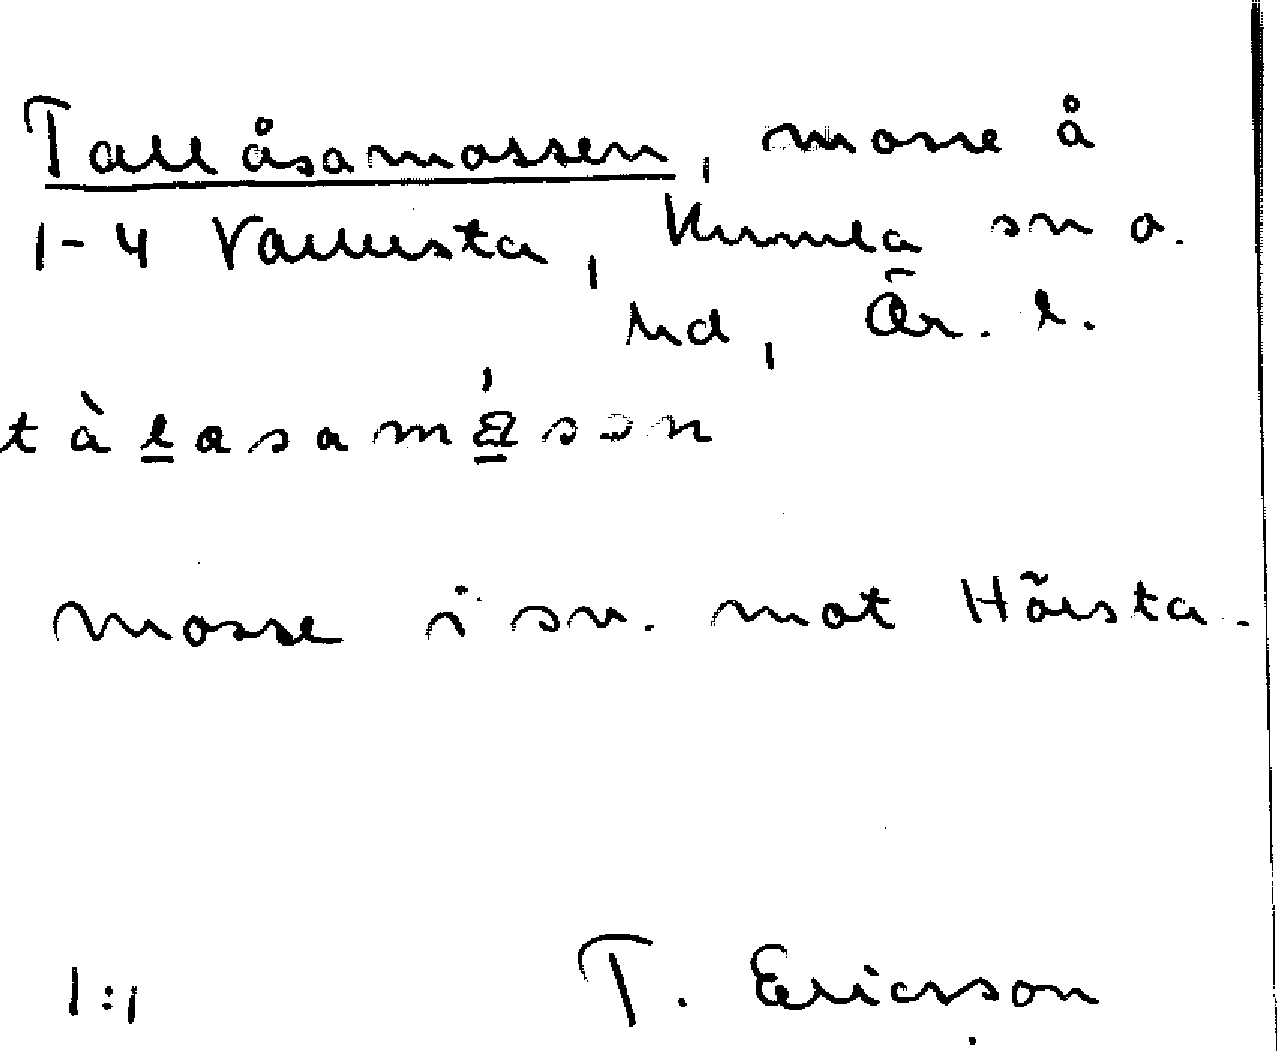 Tallåsamossen, mosse å
1-4 Vallersta, Kumla sn o.
hd, Ör. l.
mosse i sv. mot Hörsta.
1:1 T. Ericsson